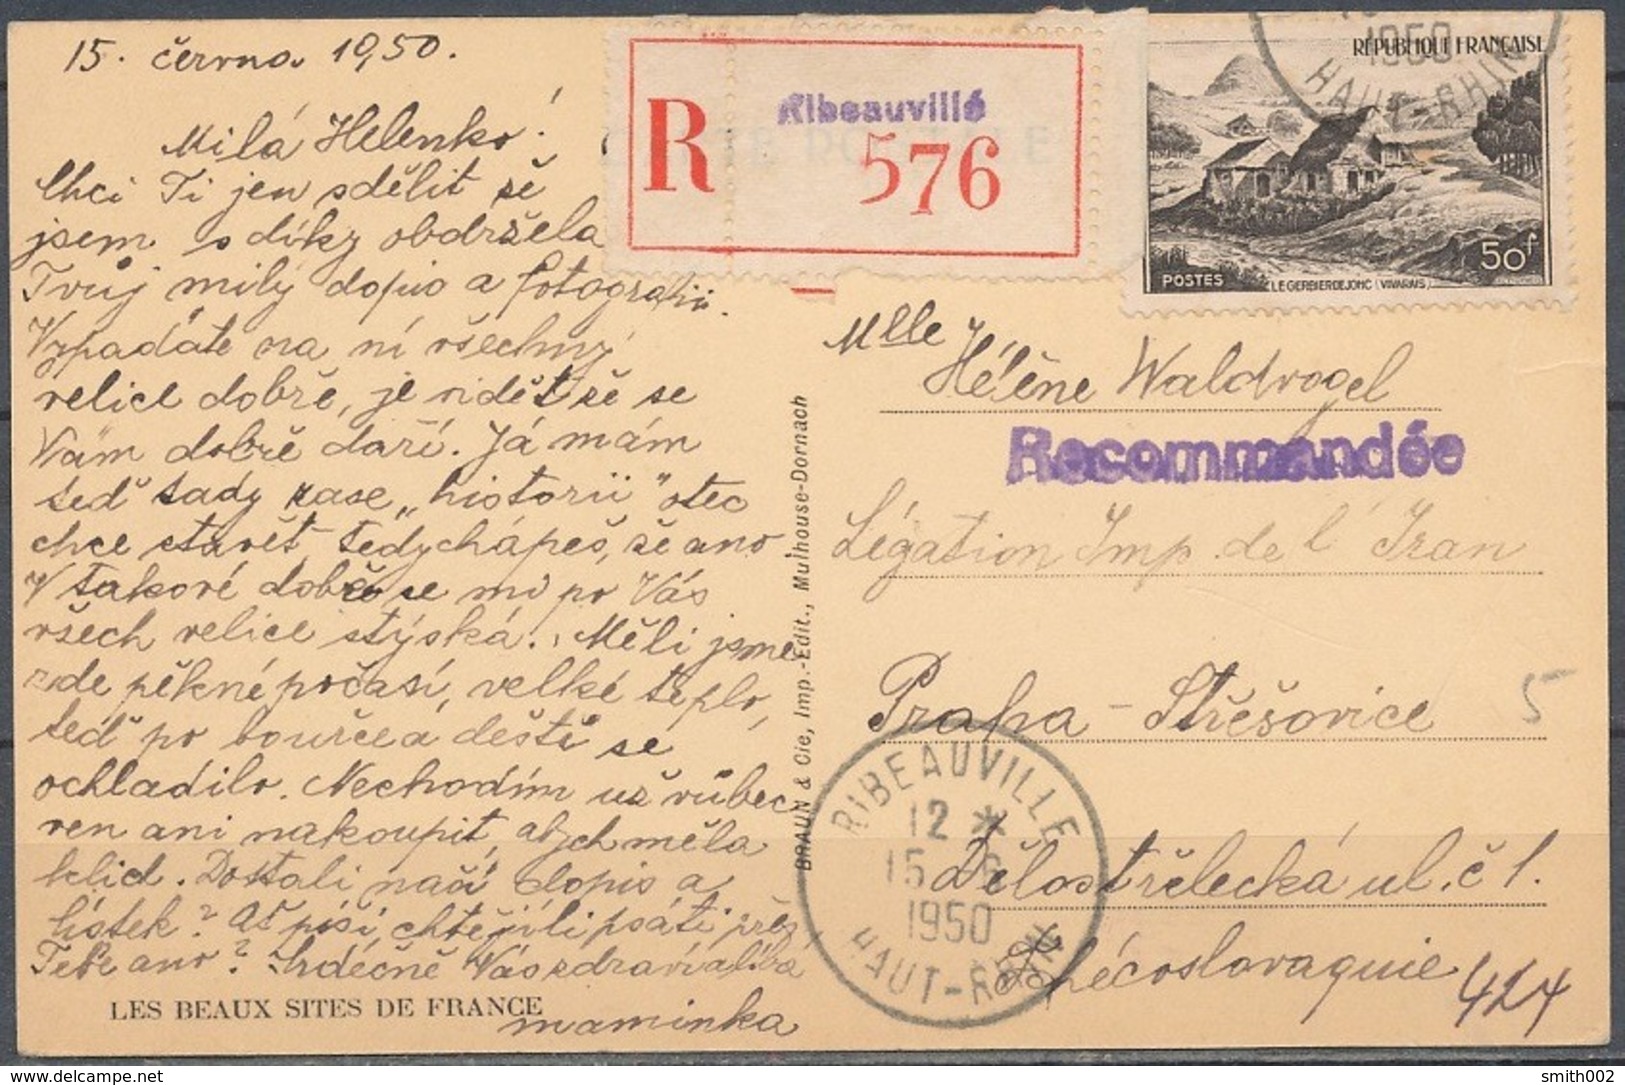 15. června 1950.
Milá Helenko!
Chci Ti jen sdělit že
jsem s díky obdržela
Tvůj milý dopis a fotografii.
Vypadáte na ní všechny
velice dobře, je vidět že se
Vám dobře daří. Já mám
teď tady zase „historii" otec
chce stavět, tedy chápeš, že ano
V takové době se mi po Vás
všech velice stýská. Měli jsme
zde pěkné počasí, velké teplo,
teď po bouřce a dešti se
ochladilo. Nechodím už vůbec
ven ani nakoupit, abych měla
klid. Dostali naši dopis a
lístek? Ať píší, chtějí-li psáti přes
Tebe ano? Srdečně Vás zdraví a líbá
maminka
LES BEAUX SITES DE FRANCE
BRAUN & Cie, Imp.-Edit., Mulhouse-Dornach
R
Ribeauvillé
576
CARTE POSTALE
RÉPUBLIQUE FRANÇAISE
1950
HAUT-RHIN
50f
POSTES
LE GERBIER DE JONC (VIVARAIS)
Mlle
Hélène Waldvogel
Recommandée
Légation Imp. de l'Iran
Praha - Střešovice
5
RIBEAUVILLE
12 *
15 -6
1950
HAUT-RHIN
Dělostřelecká ul. č 1.
Tchécoslovaquie
424
smith002